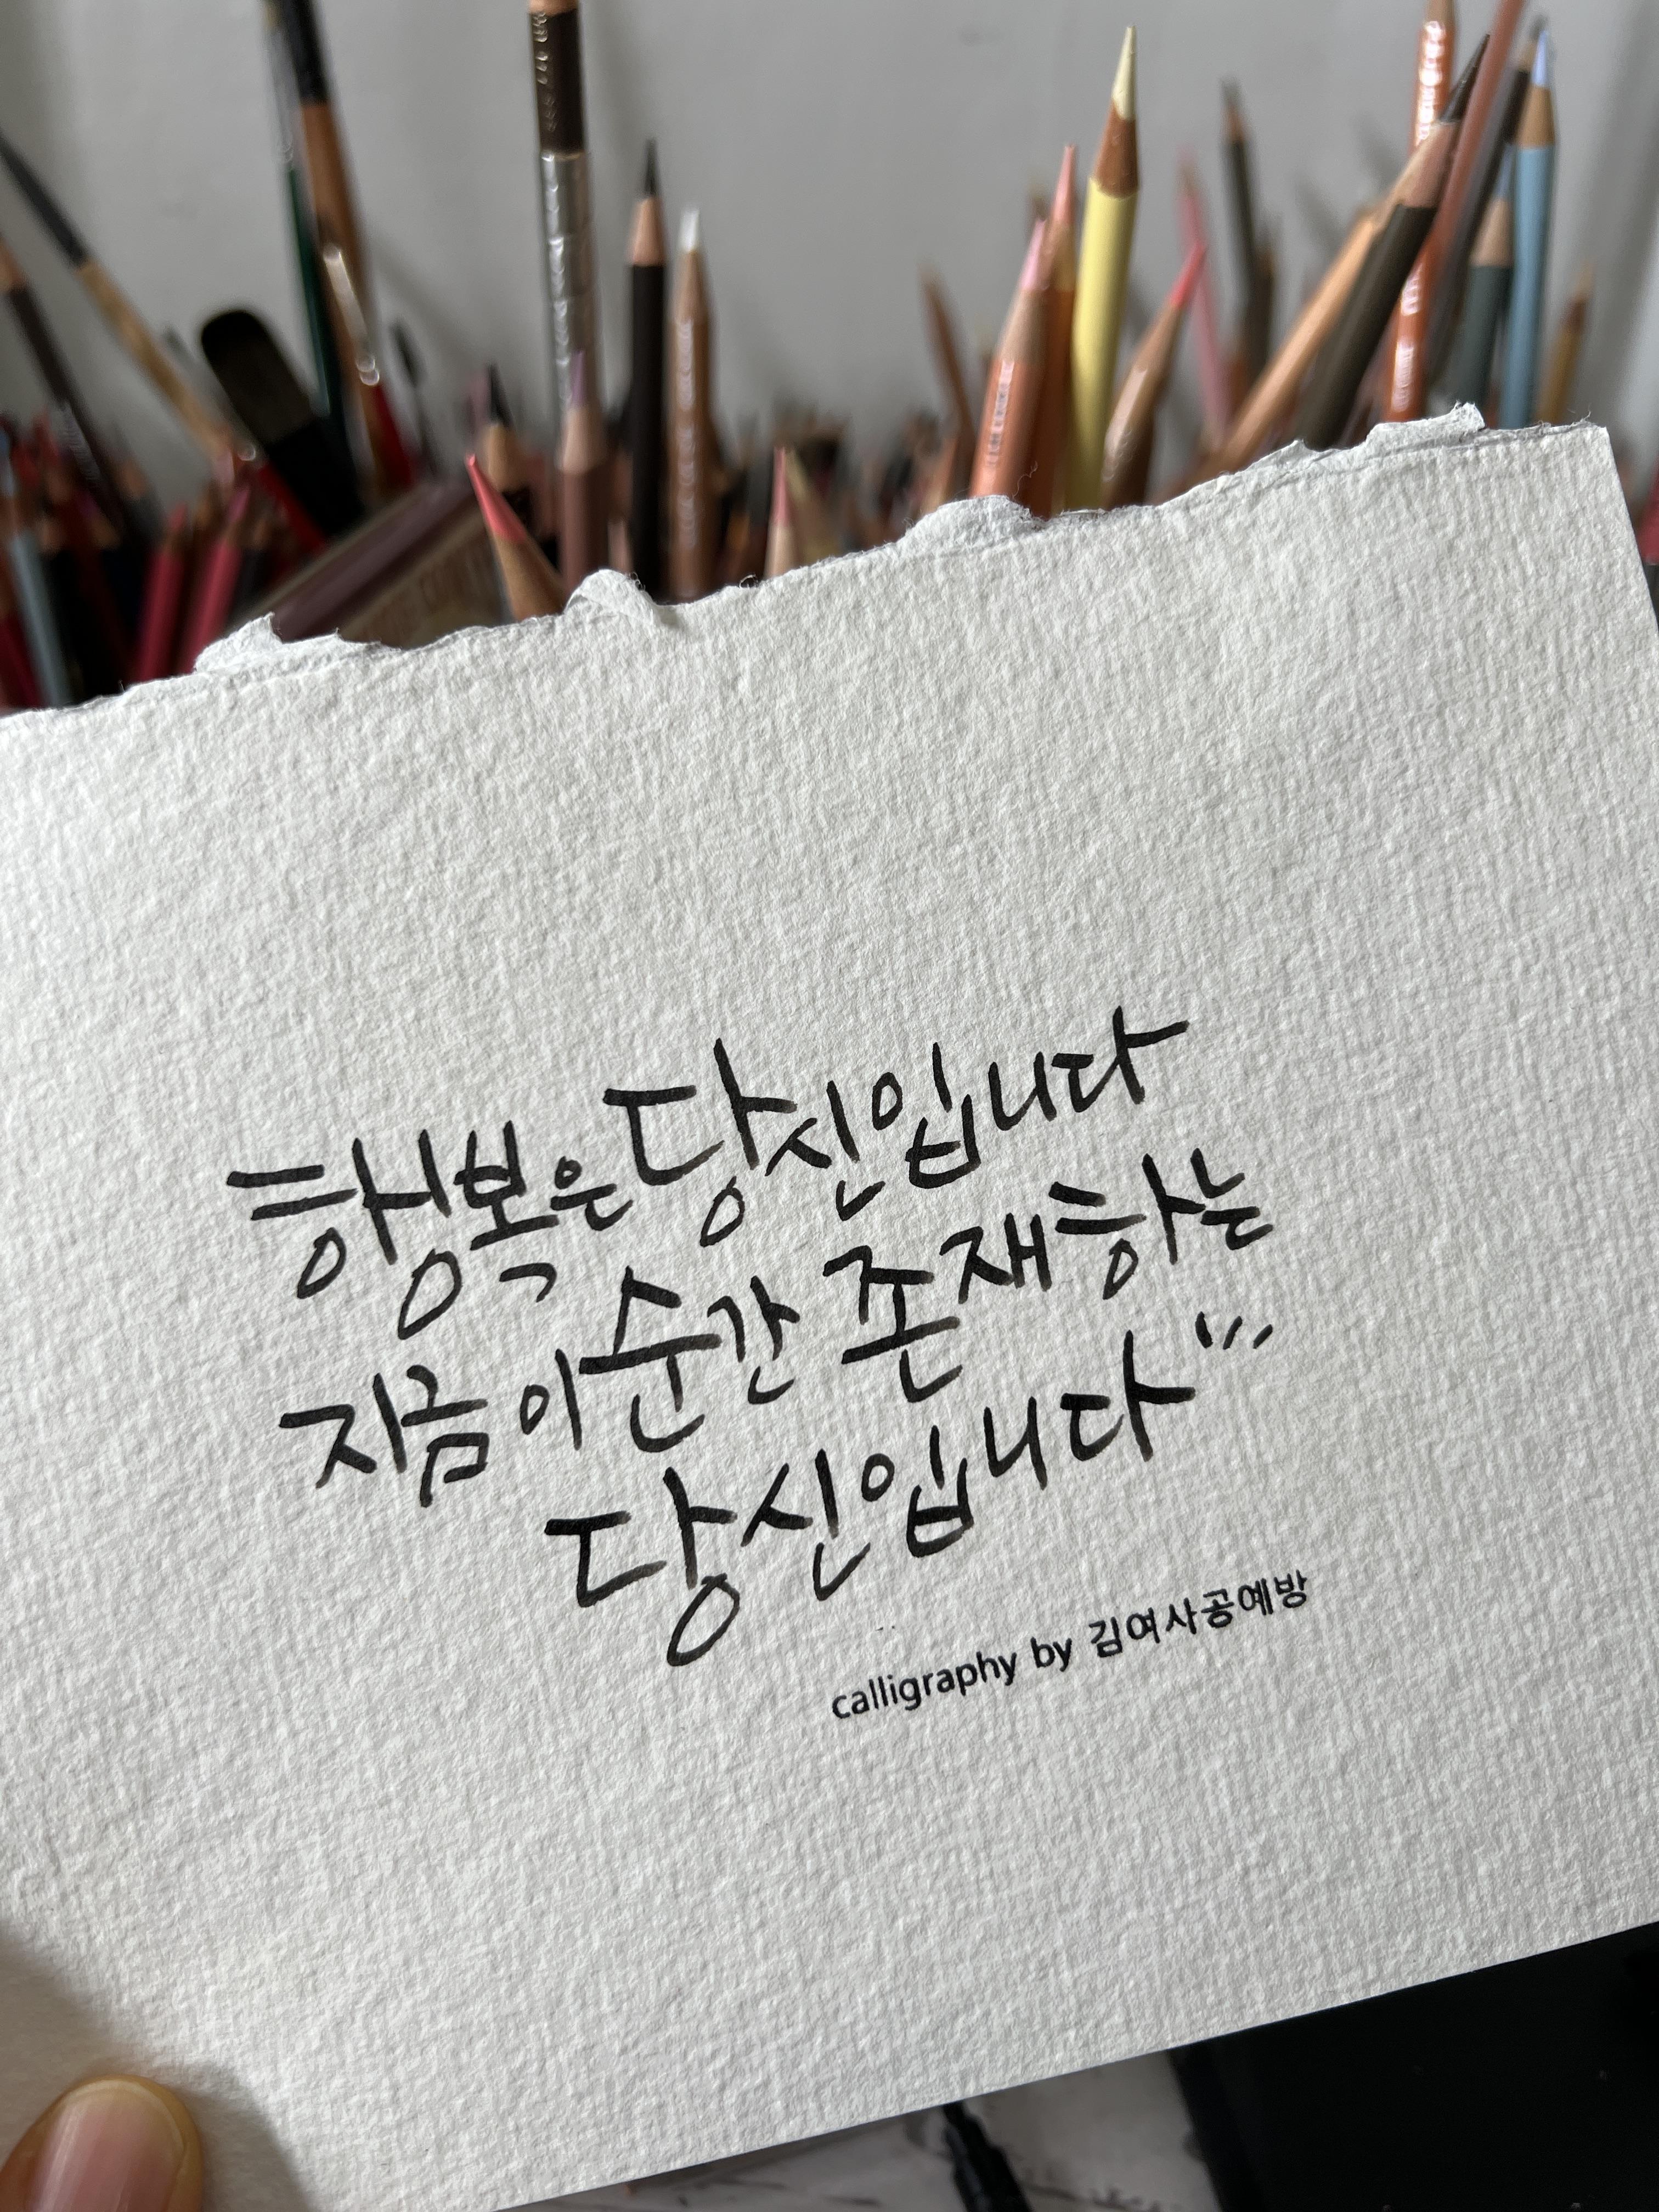 행복은 당신입니다
지금 이 순간 존재하는
당신입니다
calligraphy by 김여사공예방